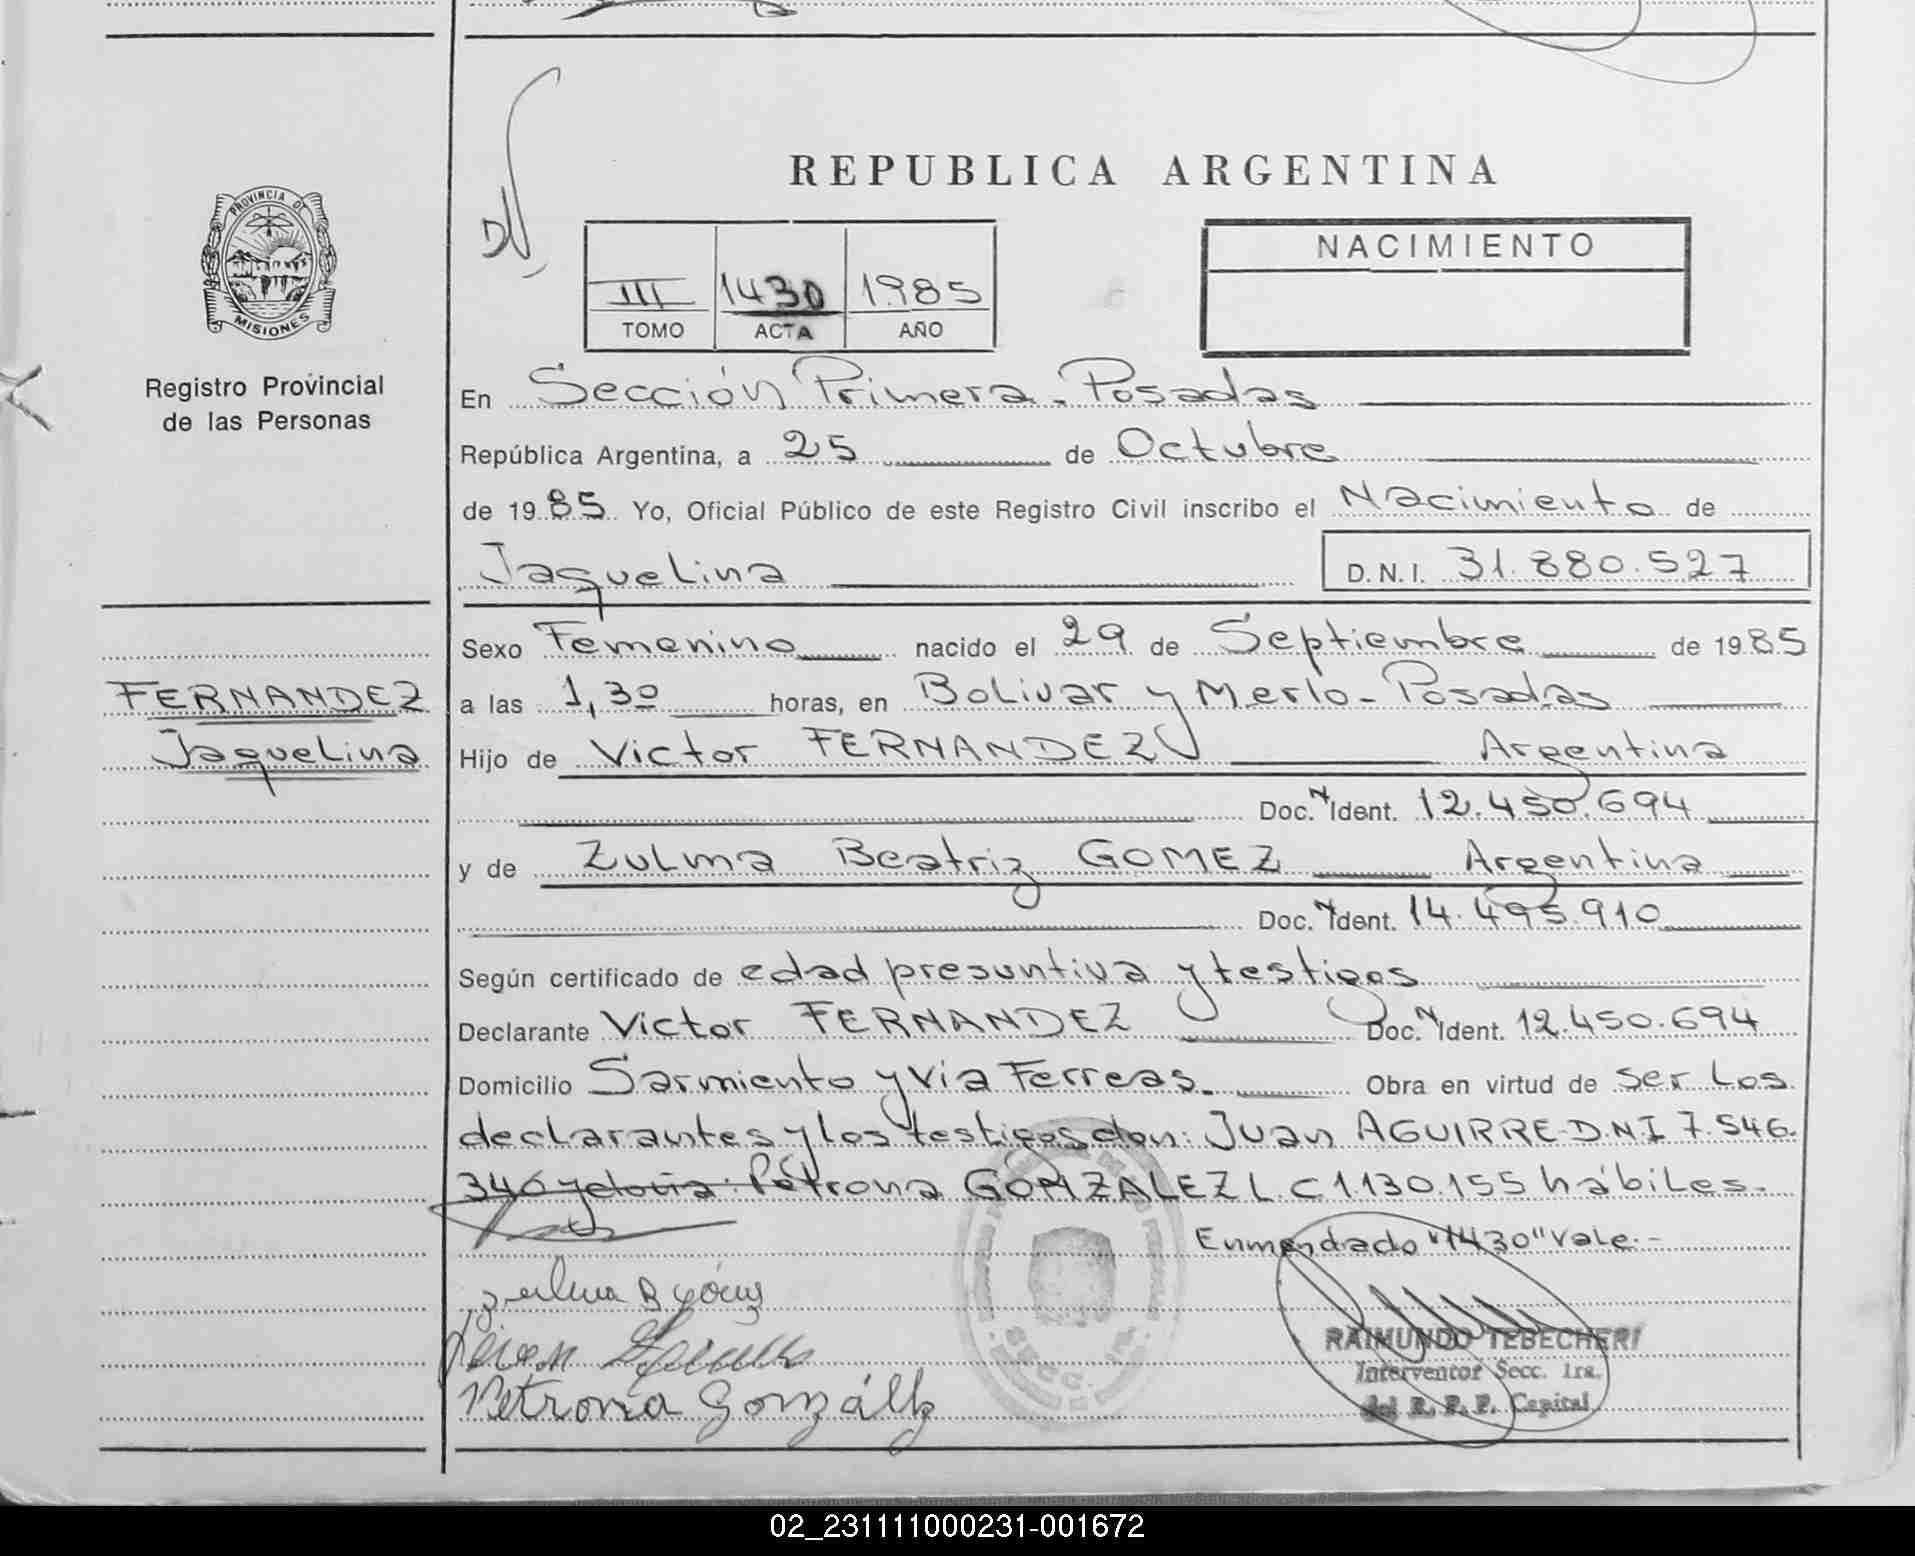 REPUBLICA ARGENTINA
PROVINCIA DE
MISIONES
Registro Provincial
de las Personas
III 1430 1985
TOMO ACTA AÑO
NACIMIENTO
En Sección Primera - Posadas
República Argentina, a 25 de Octubre
de 1985 Yo, Oficial Público de este Registro Civil inscribo el Nacimiento de
Jaquelina D.N.I. 31.880.527
Sexo Femenino nacido el 29 de Septiembre de 1985
FERNANDEZ
Jaquelina
a las 1,30 horas, en Bolivar y Merlo - Posadas
Hijo de Victor FERNANDEZ Argentina
Doc. N Ident. 12.450.694
y de Zulma Beatriz GOMEZ Argentina
Doc. N Ident. 14.495.910
Según certificado de edad presuntiva y testigos
Declarante Victor FERNANDEZ Doc. N Ident. 12.450.694
Domicilio Sarmiento y Via Ferreas. Obra en virtud de ser los
declarantes y los testigos don: Juan AGUIRRE D.N.I 7.546.
340 y doña: Petrona GONZALEZ L.C 1.130.155 hábiles.
Enmendado "1430" vale.-
Petrona González
RAIMUNDO TEBECHERI
Interventor Secc. 1ra.
del R. P. P. Capital
02_231111000231-001672